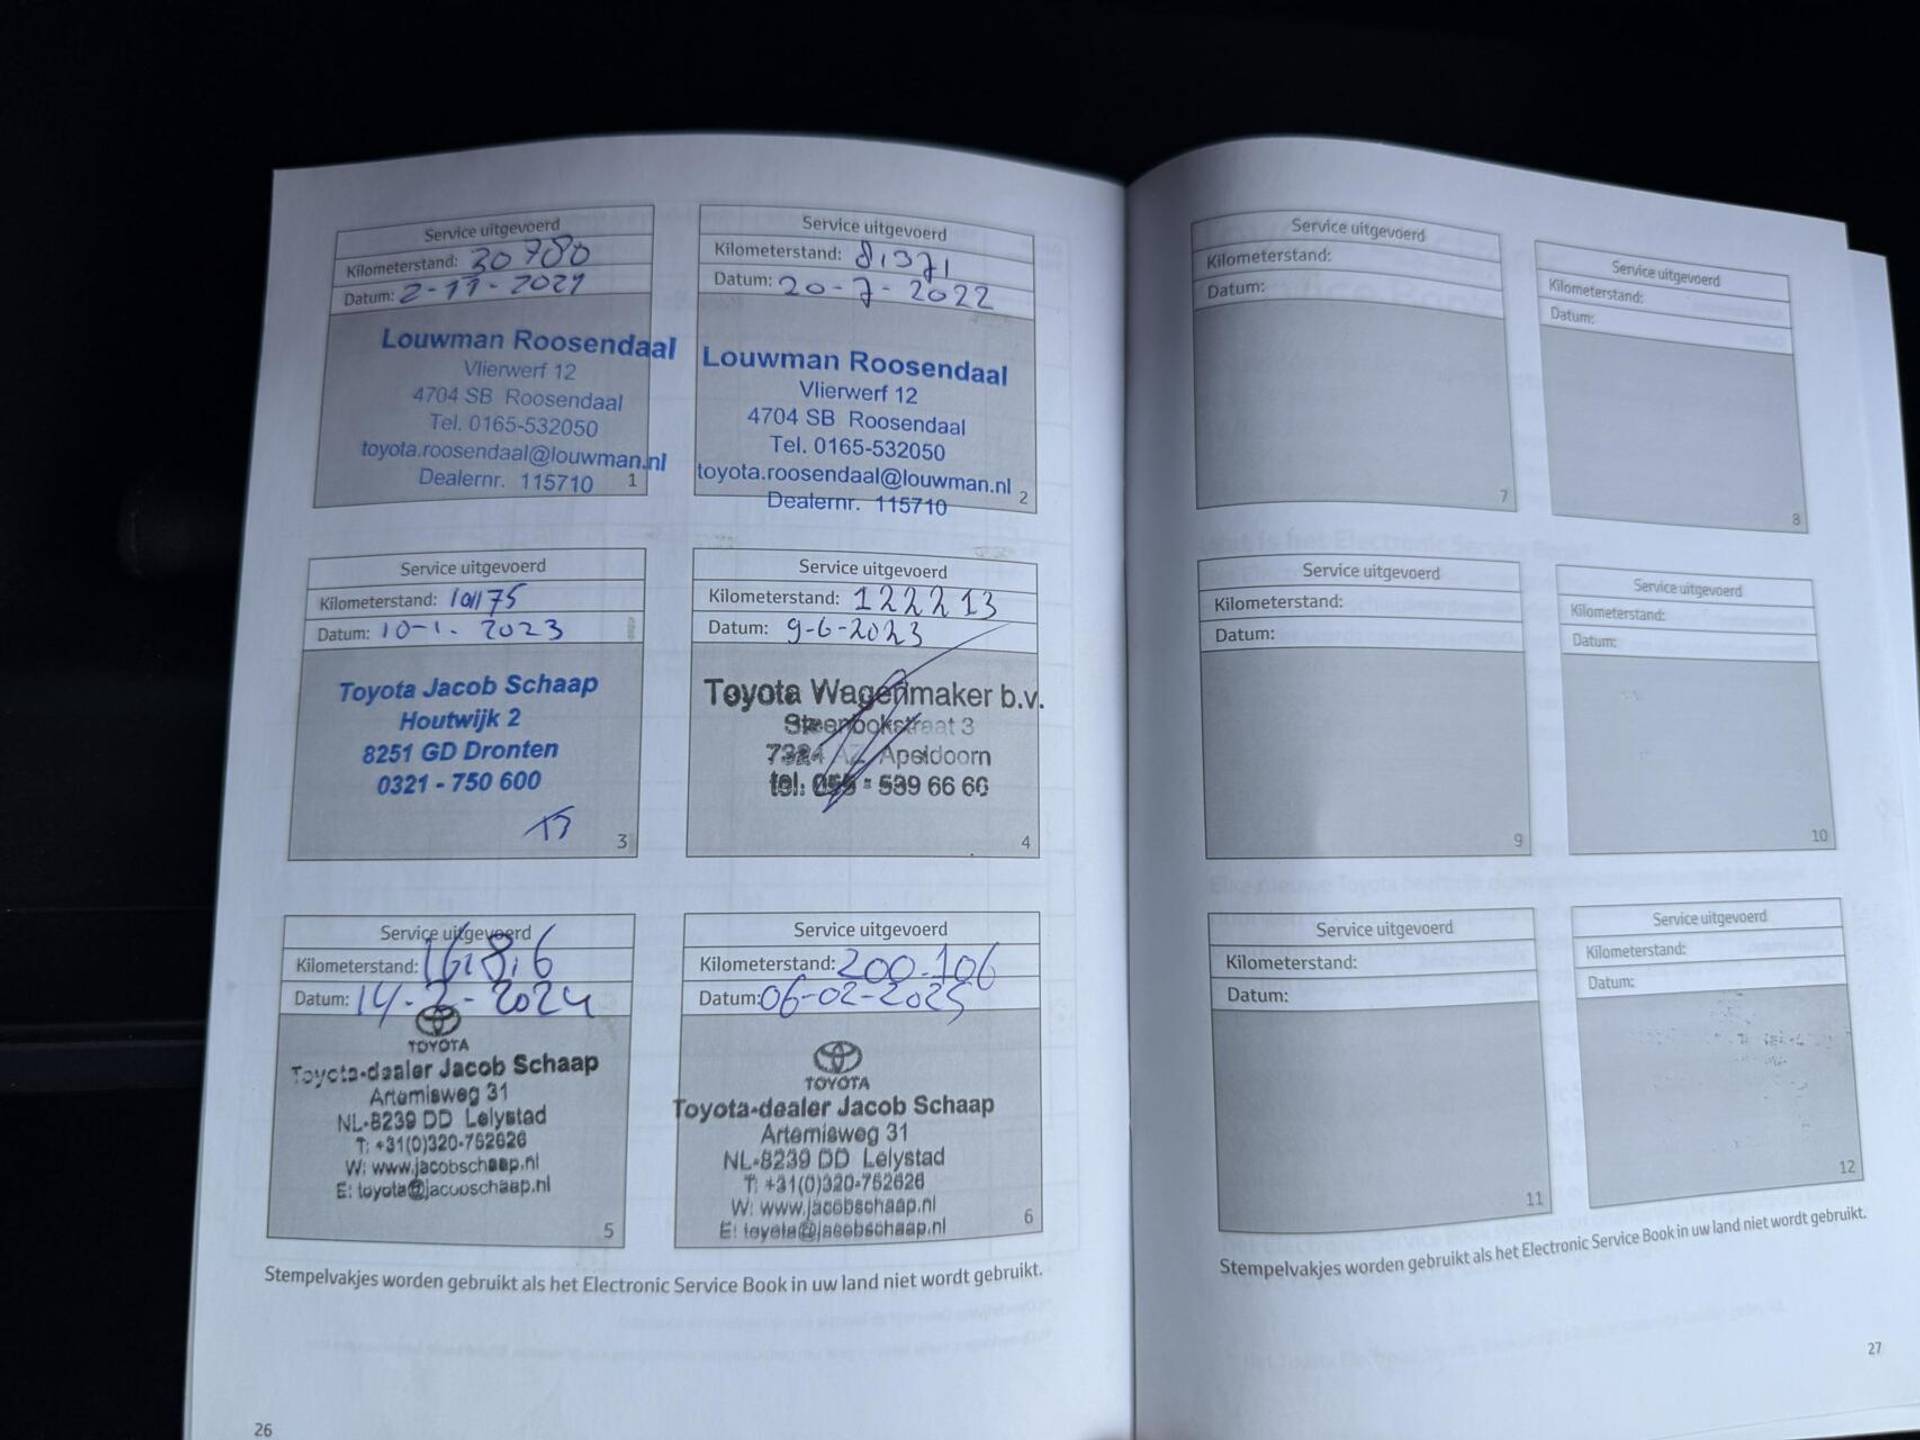 Service uitgevoerd
Kilometerstand: 30780
Datum: 2-11-2021
Louwman Roosendaal
Vlierwerf 12
4704 SB Roosendaal
Tel. 0165-532050
toyota.roosendaal@louwman.nl
Dealernr. 115710
1
Service uitgevoerd
Kilometerstand: 81371
Datum: 20-7-2022
Louwman Roosendaal
Vlierwerf 12
4704 SB Roosendaal
Tel. 0165-532050
toyota.roosendaal@louwman.nl
Dealernr. 115710
2
Service uitgevoerd
Kilometerstand: 101175
Datum: 10-1-2023
Toyota Jacob Schaap
Houtwijk 2
8251 GD Dronten
0321 - 750 600
3
Service uitgevoerd
Kilometerstand: 122213
Datum: 9-6-2023
Toyota Wagenmaker b.v.
Steenbokstraat 3
7324 AZ Apeldoorn
tel: 055 - 539 66 66
4
Service uitgevoerd
Kilometerstand:
Datum: 14-2-2024
TOYOTA
Toyota-dealer Jacob Schaap
Artemisweg 31
NL-8239 DD Lelystad
T: +31(0)320-762626
W: www.jacobschaap.nl
E: toyota@jacobschaap.nl
5
Service uitgevoerd
Kilometerstand: 200.106
Datum: 06-02-2025
TOYOTA
Toyota-dealer Jacob Schaap
Artemisweg 31
NL-8239 DD Lelystad
T: +31(0)320-762626
W: www.jacobschaap.nl
E: toyota@jacobschaap.nl
6
Stempelvakjes worden gebruikt als het Electronic Service Book in uw land niet wordt gebruikt.
26
Service uitgevoerd
Kilometerstand:
Datum:
7
Service uitgevoerd
Kilometerstand:
Datum:
8
Service uitgevoerd
Kilometerstand:
Datum:
9
Service uitgevoerd
Kilometerstand:
Datum:
10
Service uitgevoerd
Kilometerstand:
Datum:
11
Service uitgevoerd
Kilometerstand:
Datum:
12
Stempelvakjes worden gebruikt als het Electronic Service Book in uw land niet wordt gebruikt.
27